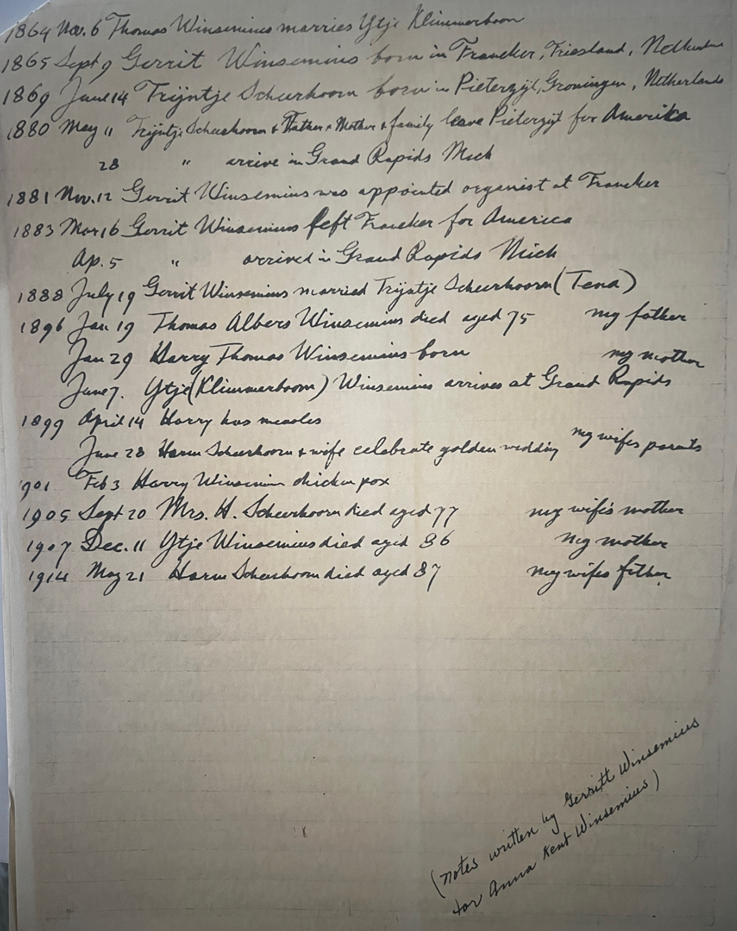 1864 Nov. 6 Thomas Winsemius marries Ytje Klimmerboom
1865 Sept 9 Gerrit Winsemius born in Franeker, Friesland, Netherlands
1869 June 14 Trijntje Scheerhoorn born in Pieterzijl, Groningen, Netherlands
1880 May 11 Trijntje Scheerhoorn & Father & Mother & family leave Pieterzijl for Amerika
28 " arrive in Grand Rapids Mich
1881 Nov. 12 Gerrit Winsemius was appointed organist at Franeker
1883 Mar 16 Gerrit Winsemius left Franeker for America
Ap. 5 " arrived in Grand Rapids Mich
1888 July 19 Gerrit Winsemius married Trijntje Scheerhoorn (Tena)
1896 Jan 19 Thomas Albers Winsemius died aged 75 my father
Jan 29 Harry Thomas Winsemius born
June 7. Ytje (Klimmerboom) Winsemius arrives at Grand Rapids my mother
1899 April 14 Harry has measles
June 28 Harm Scheerhoorn & wife celebrate golden wedding my wifes parents
1901 Feb 3 Harry Winsemius chicken pox
1905 Sept 20 Mrs. H. Scheerhoorn died aged 77 my wife's mother
1907 Dec. 11 Ytje Winsemius died aged 86 my mother
1914 May 21 Harm Scheerhoorn died aged 87 my wifes father
(notes written by Gerritt Winsemius
for Anna Kent Winsemius)